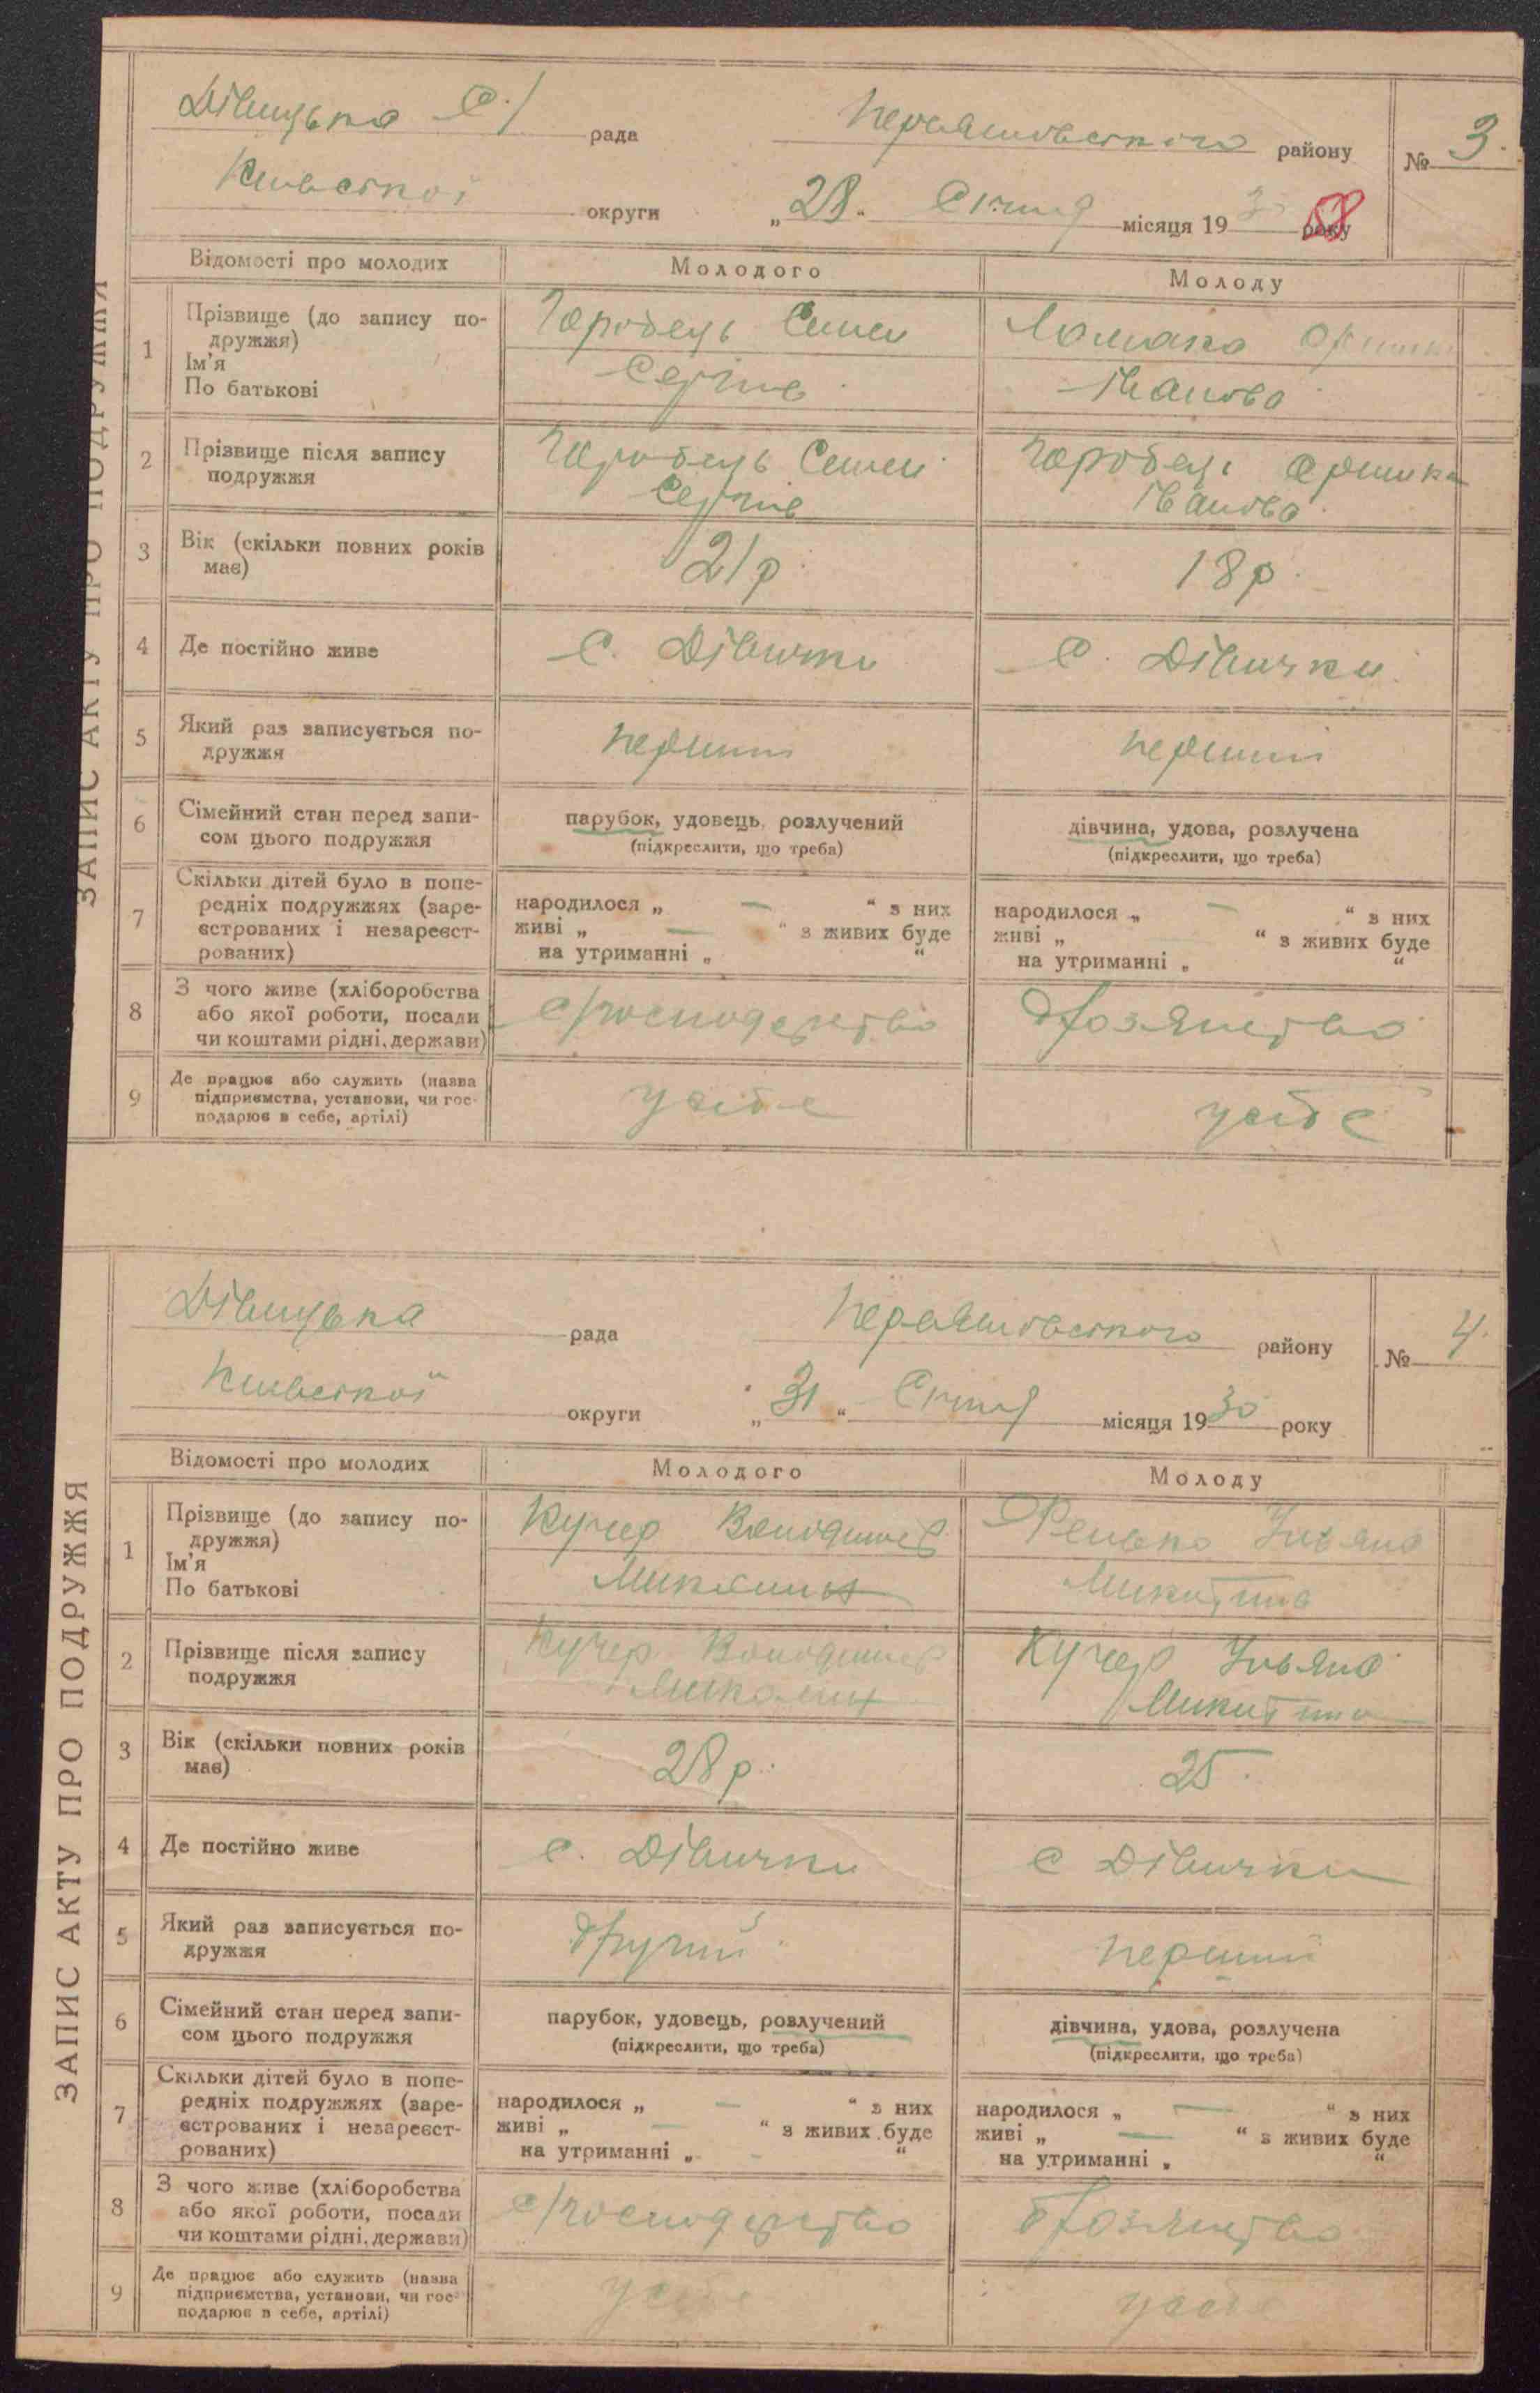 Дівицька С/ рада Переяславського району № 3.
Київської округи „28“ Січня місяця 1930 року
58
ЗАПИС АКТУ ПРО ПОДРУЖЖЯ
Відомості про молодих Молодого Молоду
1 Прізвище (до запису по-
дружжя)
Ім'я
По батькові
Горобець Семен
Сергіїв
Ломака Оришка
Іванова
2 Прізвище після запису
подружжя
Горобець Семен
Сергіїв
Горобець Оришка
Іванова
3 Вік (скільки повних років
має)
21 р. 18 р.
4 Де постійно живе с. Дівички с. Дівички
5 Який раз записується по-
дружжя
перший перший
6 Сімейний стан перед запи-
сом цього подружжя
парубок, удовець, розлучений
(підкреслити, що треба)
дівчина, удова, розлучена
(підкреслити, що треба)
7 Скільки дітей було в попе-
редніх подружжях (заре-
єстрованих і незареєст-
рованих)
народилося „ — “ з них
живі „ — “ з живих буде
на утриманні „ “
народилося „ — “ з них
живі „ “ з живих буде
на утриманні „ “
8 З чого живе (хліборобства
або якої роботи, посади
чи коштами рідні, держави)
с/господарство
9 Де працює або служить (назва
підприємства, установи, чи гос-
подарює в себе, артілі)
у себе у себе
Дівицька рада Переяславського району № 4.
Київської округи „31“ Січня місяця 1930 року
ЗАПИС АКТУ ПРО ПОДРУЖЖЯ
Відомості про молодих Молодого Молоду
1 Прізвище (до запису по-
дружжя)
Ім'я
По батькові
Кучер Володимир
Миколин
Уляна
Микитина
2 Прізвище після запису
подружжя
Кучер Володимир
Миколин
Кучер Уляна
Микитина
3 Вік (скільки повних років
має)
28 р. 25.
4 Де постійно живе с. Дівички с Дівички
5 Який раз записується по-
дружжя
другий перший
6 Сімейний стан перед запи-
сом цього подружжя
парубок, удовець, розлучений
(підкреслити, що треба)
дівчина, удова, розлучена
(підкреслити, що треба)
7 Скільки дітей було в попе-
редніх подружжях (заре-
єстрованих і незареєст-
рованих)
народилося „ — “ з них
живі „ — “ з живих буде
на утриманні „ - “
народилося „ — “ з них
живі „ — “ з живих буде
на утриманні „ “
8 З чого живе (хліборобства
або якої роботи, посади
чи коштами рідні, держави)
с/господарство
9 Де працює або служить (назва
підприємства, установи, чи гос-
подарює в себе, артілі)
у себе у себе